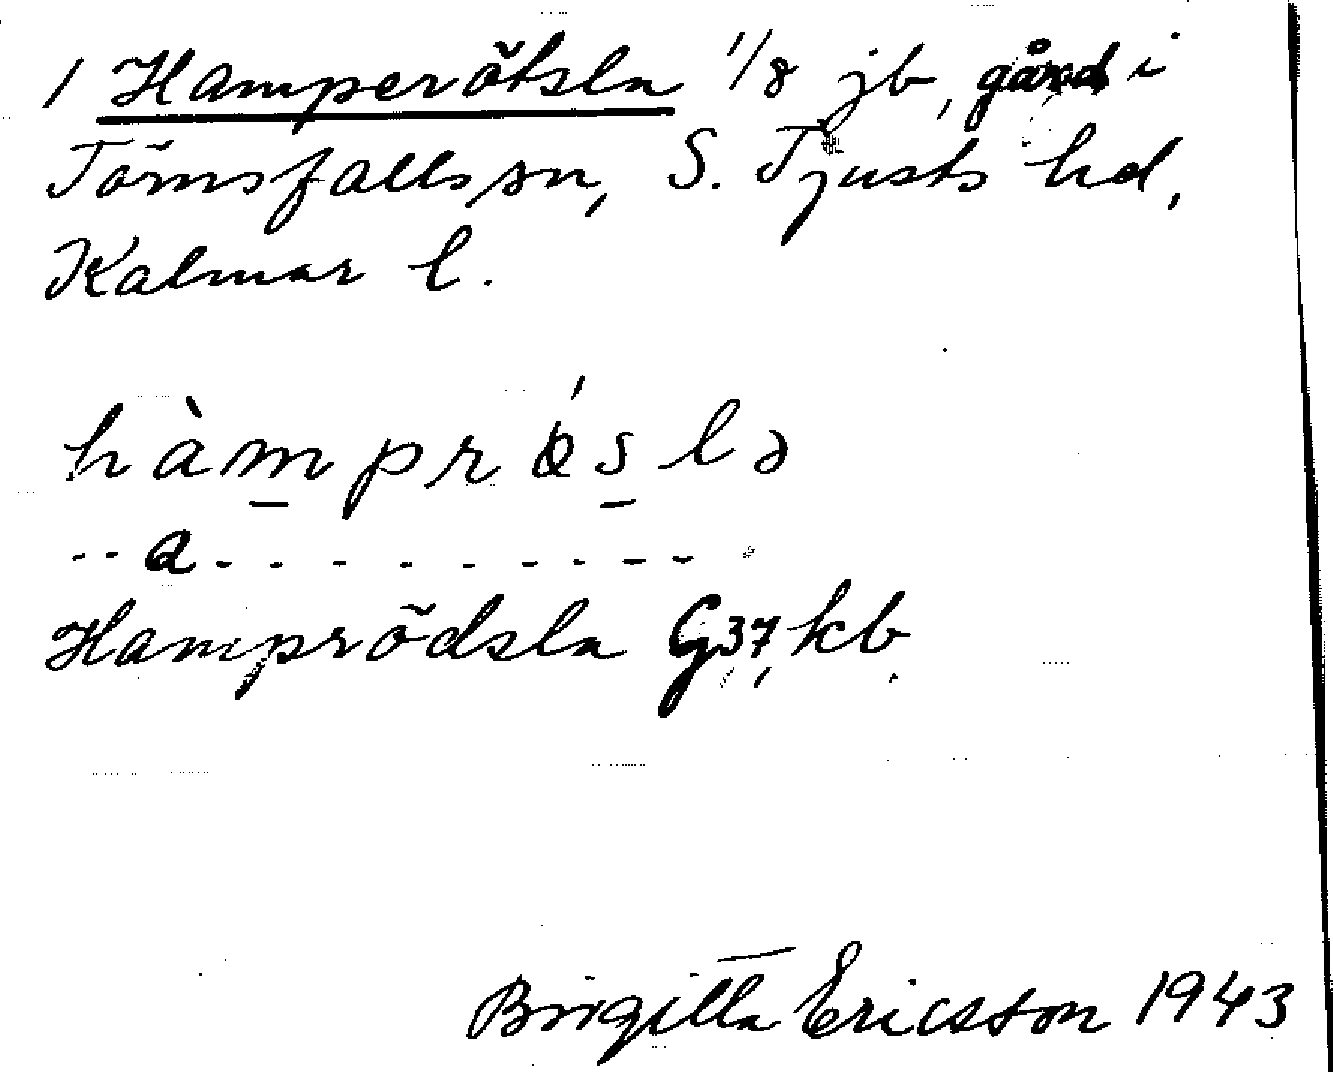 1 Hamperötsla 1/8 jb, gård i
Törnsfalls sn, S. Tjusts hd,
Kalmar l.
hàmprǿslə
--a---------
Hamprödsla G37 kb
Birgitta Ericsson 1943